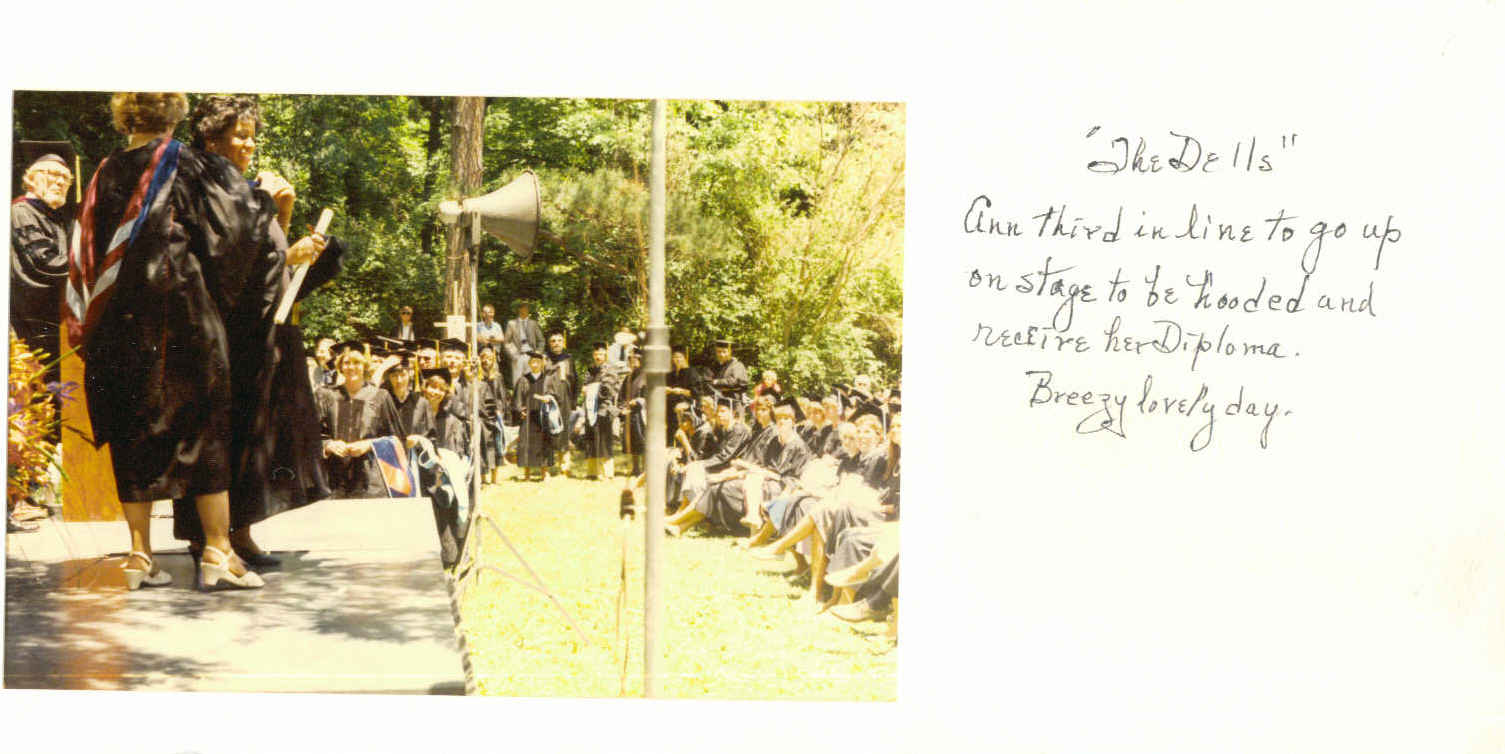 "The Dells"
Ann third in line to go up
on stage to be hooded and
receive her Diploma.
Breezy lovely day.